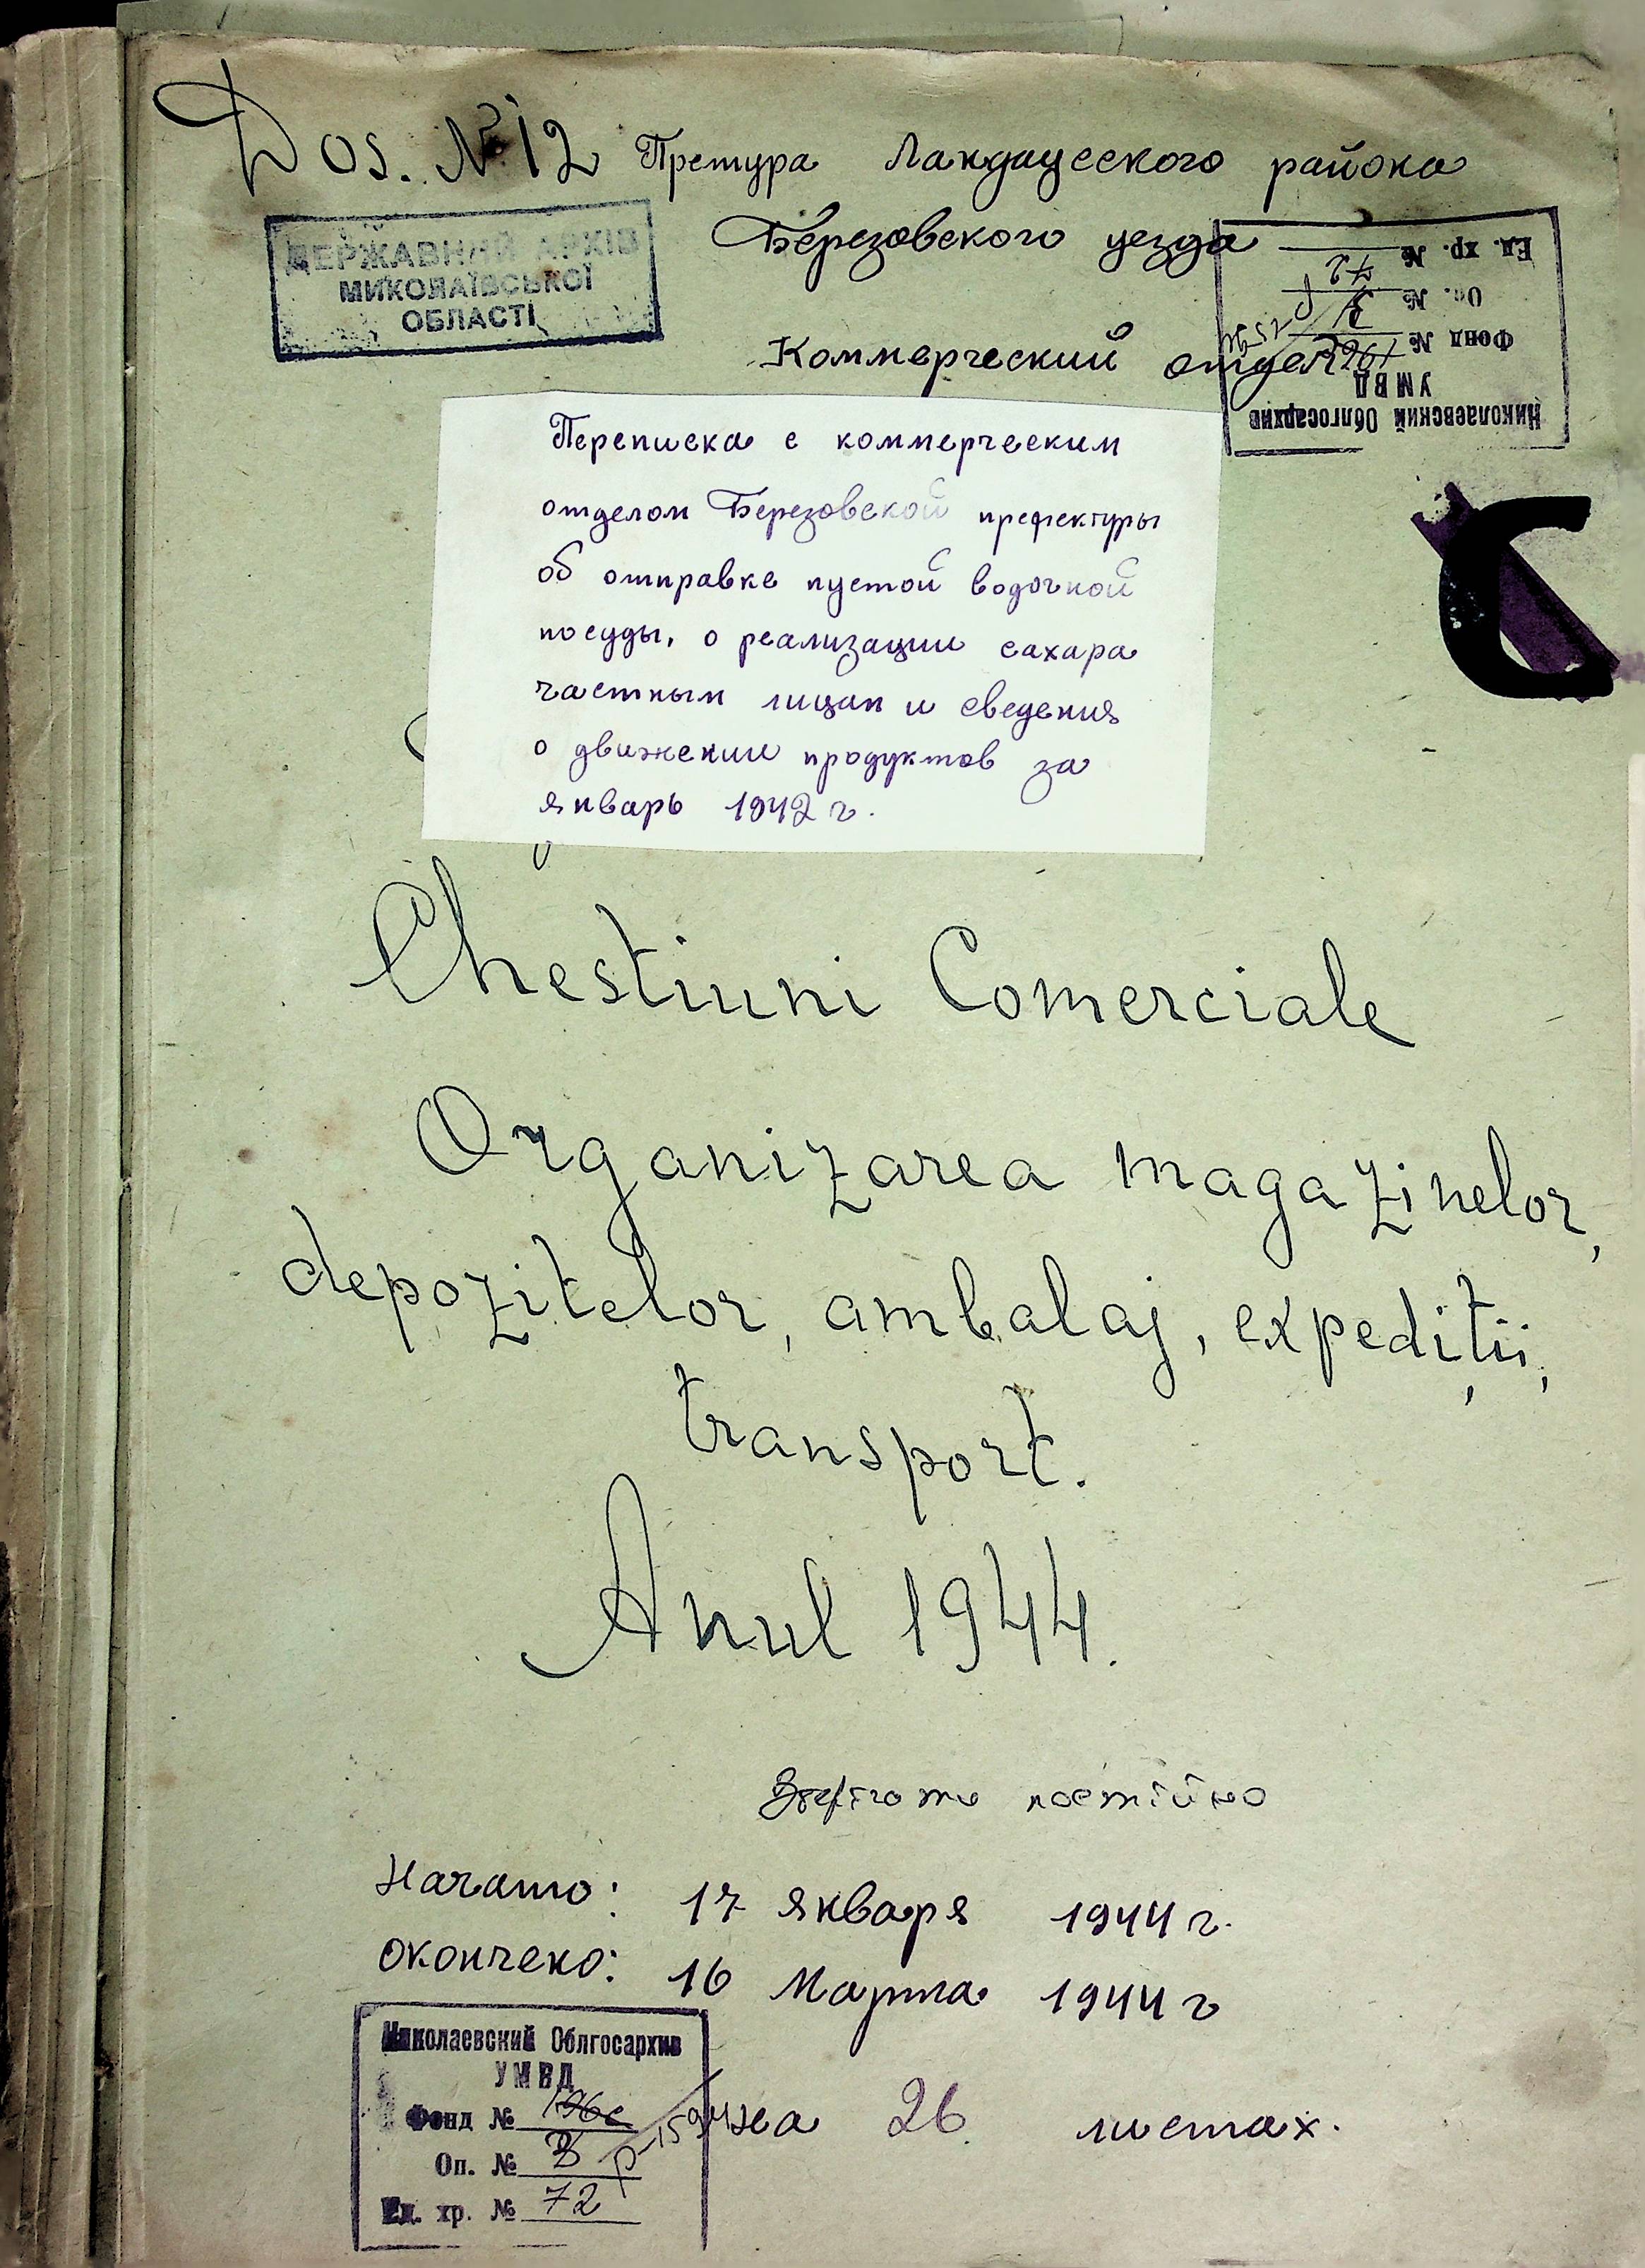 Dos. № 12 Претура Ландауского района
Березовского уезда
ДЕРЖАВНИЙ АРХІВ
МИКОЛАЇВСЬКОЇ
ОБЛАСТІ
Коммерческий отдел
Николаевский Облгосархив
УМВД
Фонд №
Оп. №
Ед. хр. № 72
Переписка с коммерческим
отделом Березовской префектуры
об отправке пустой водочной
посуды, о реализации сахара
частным лицам и сведения
о движении продуктов за
январь 1942 г.
Chestiuni Comerciale
Organizarea magazinelor,
depozitelor, ambalaj, expediții,
transport.
Anul 1944.
постійно
Начато: 17 января 1944 г.
окончено: 16 Марта 1944 г
на 26 листах.
Николаевский Облгосархив
УМВД
Фонд № 196с Р-1594
Оп. №
Ед. хр. № 72